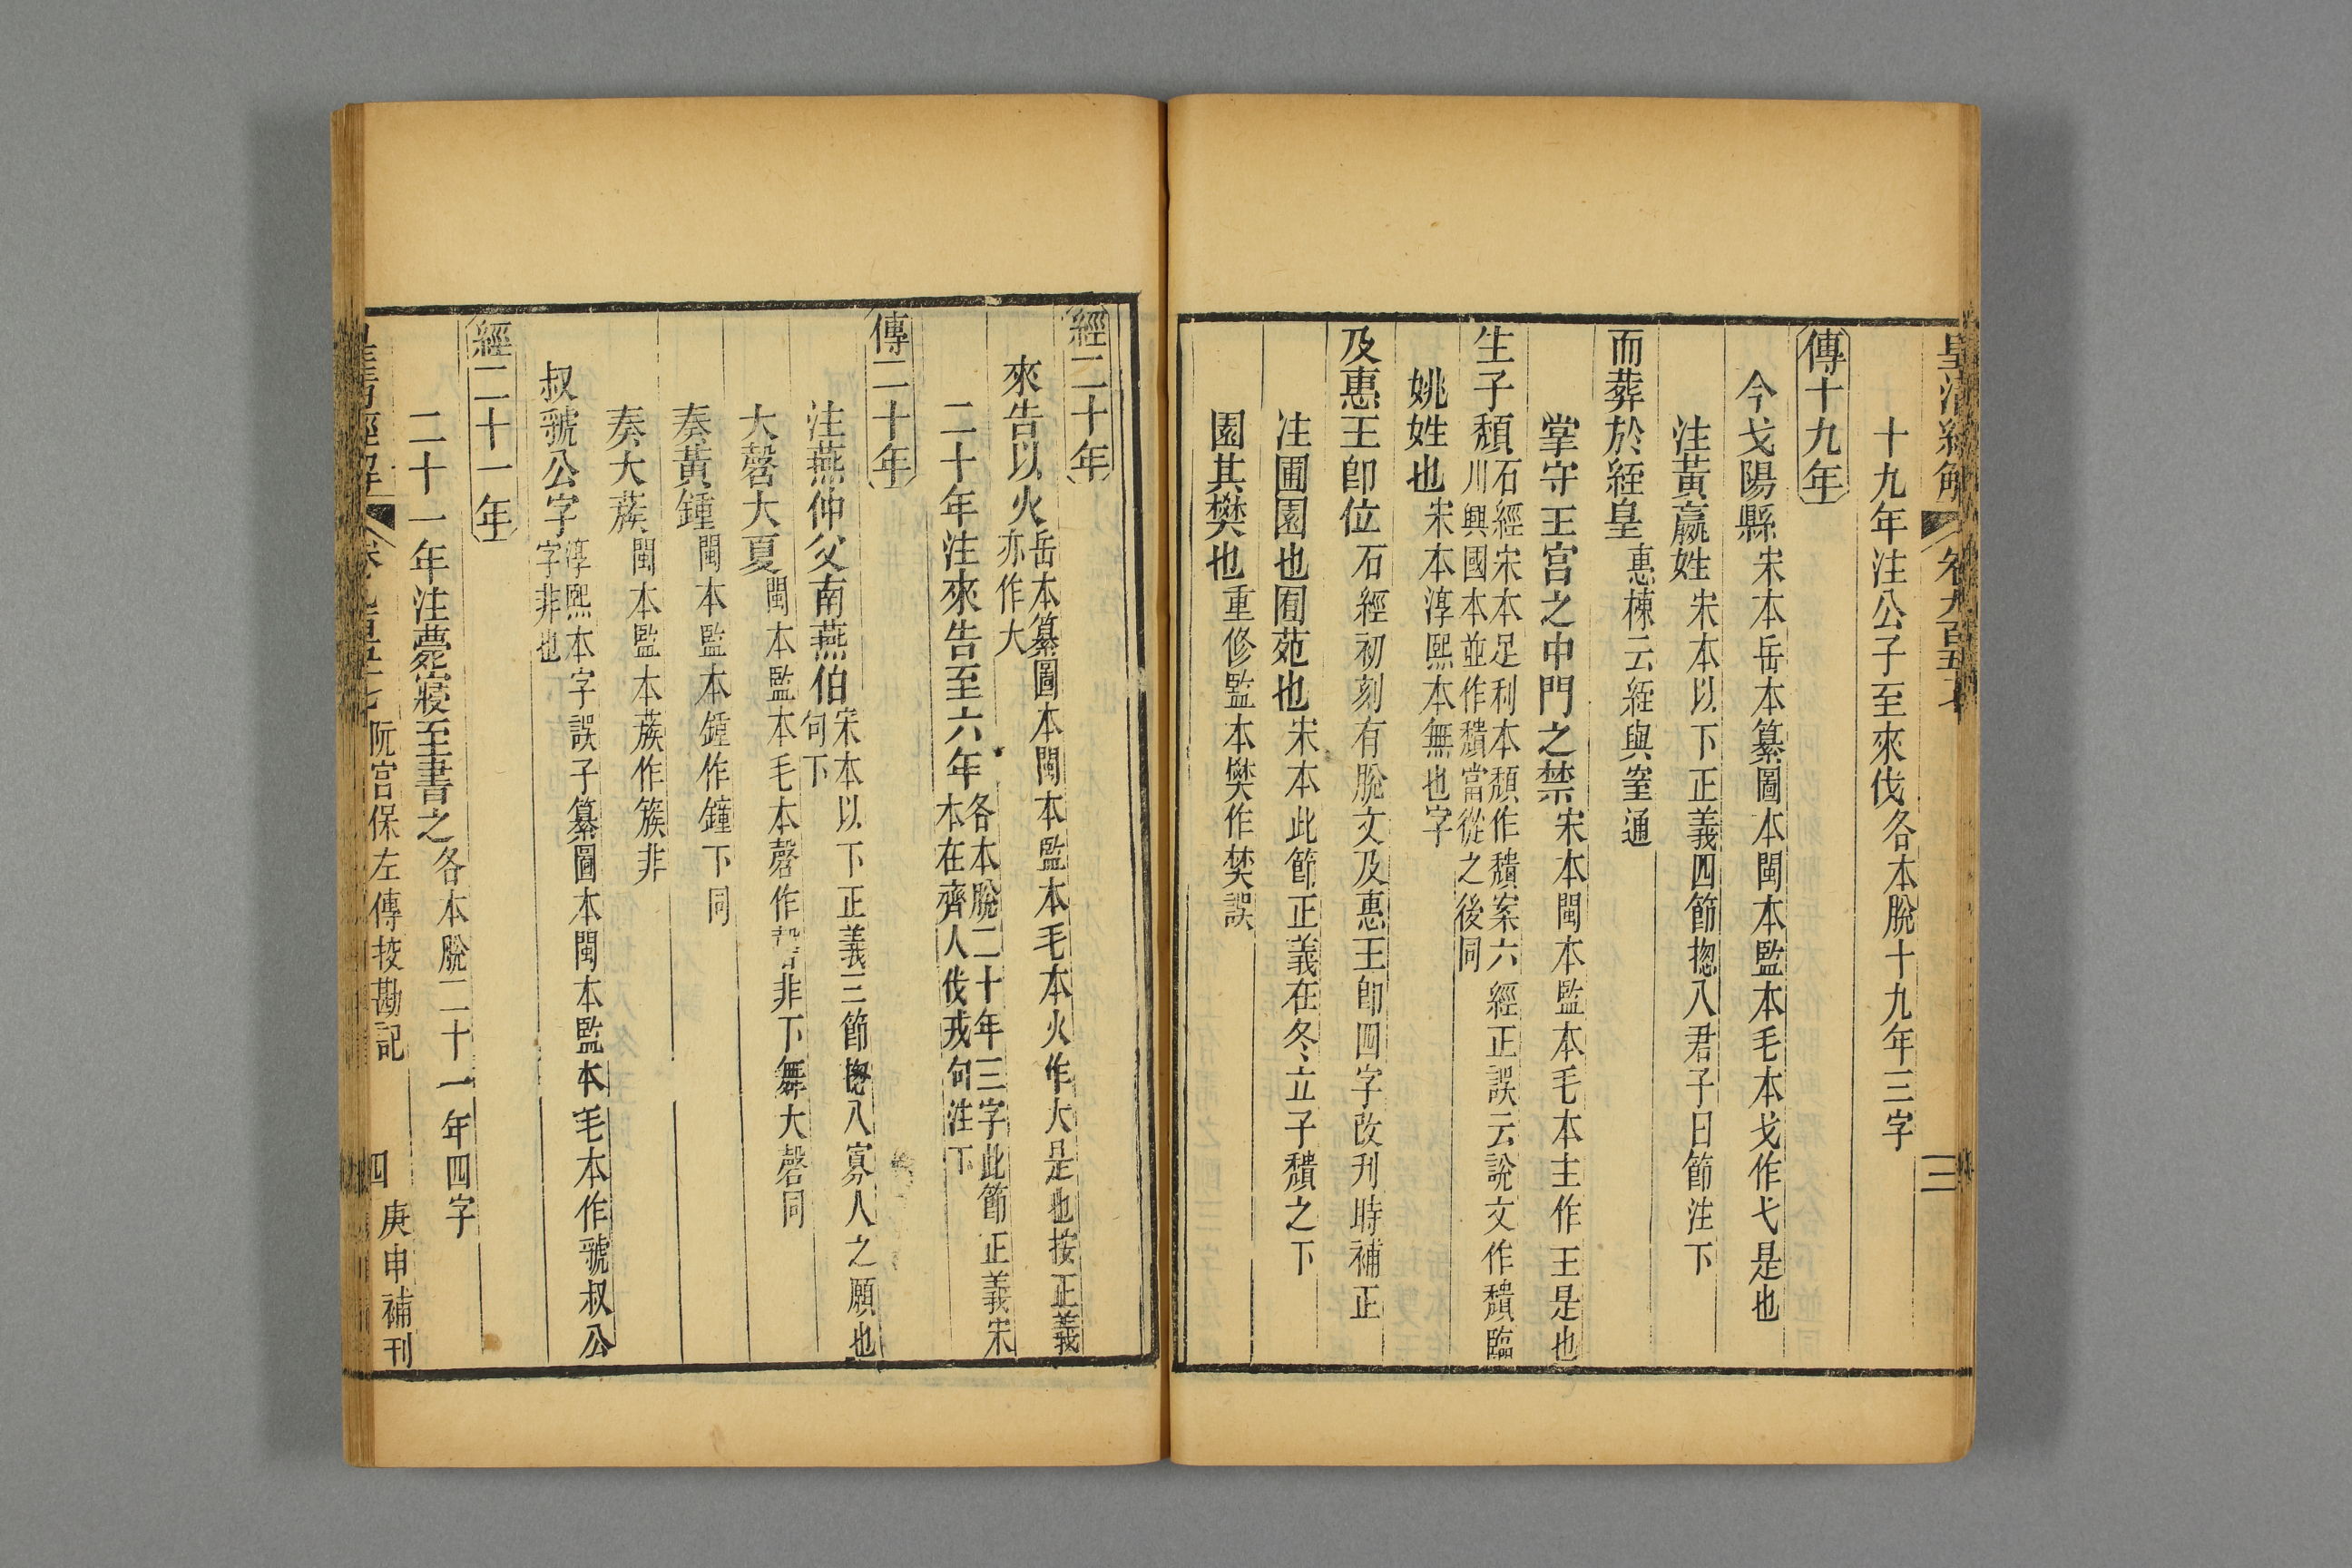 皇清經解 卷九百五十七 三
十九年注公子至來伐各本脫十九年三字
傳十九年
今戈陽縣宋本岳本纂圖本閩本監本毛本戈作弋是也
注黃嬴姓宋本以下正義四節摠入君子曰節注下
而葬於絰皇惠棟云絰與窒通
掌守王宫之中門之禁宋本閩本監本毛本主作王是也
生子頹石經宋本足利本頹作穨案六經正誤云說文作穨臨
川興國本並作穨當從之後同
姚姓也宋本淳熙本無也字
及惠王卽位石經初刻有脫文及惠王卽四字改刊時補正
注圃園也囿苑也宋本此節正義在冬立子穨之下
園其樊也重修監本樊作焚誤
經二十年
來告以火岳本纂圖本閩本監本毛本火作大是也按正義
亦作大
二十年注來告至六年各本脫二十年三字此節正義宋
本在齊人伐戎句注下
傳二十年
注燕仲父南燕伯宋本以下正義三節摠入寡人之願也
句下
大磬大夏閩本監本毛本磬作㲈非下舞大磬同
奏黃鍾閩本監本鍾作鐘下同
奏大蔟閩本監本蔟作簇非
叔虢公字淳熙本字誤子纂圖本閩本監本毛本作虢叔公
字非也
經二十一年
二十一年注薨寢至書之各本脫二十一年四字
皇清經解 卷九百五十七 阮宫保左傳挍勘記 四 庚申補刊